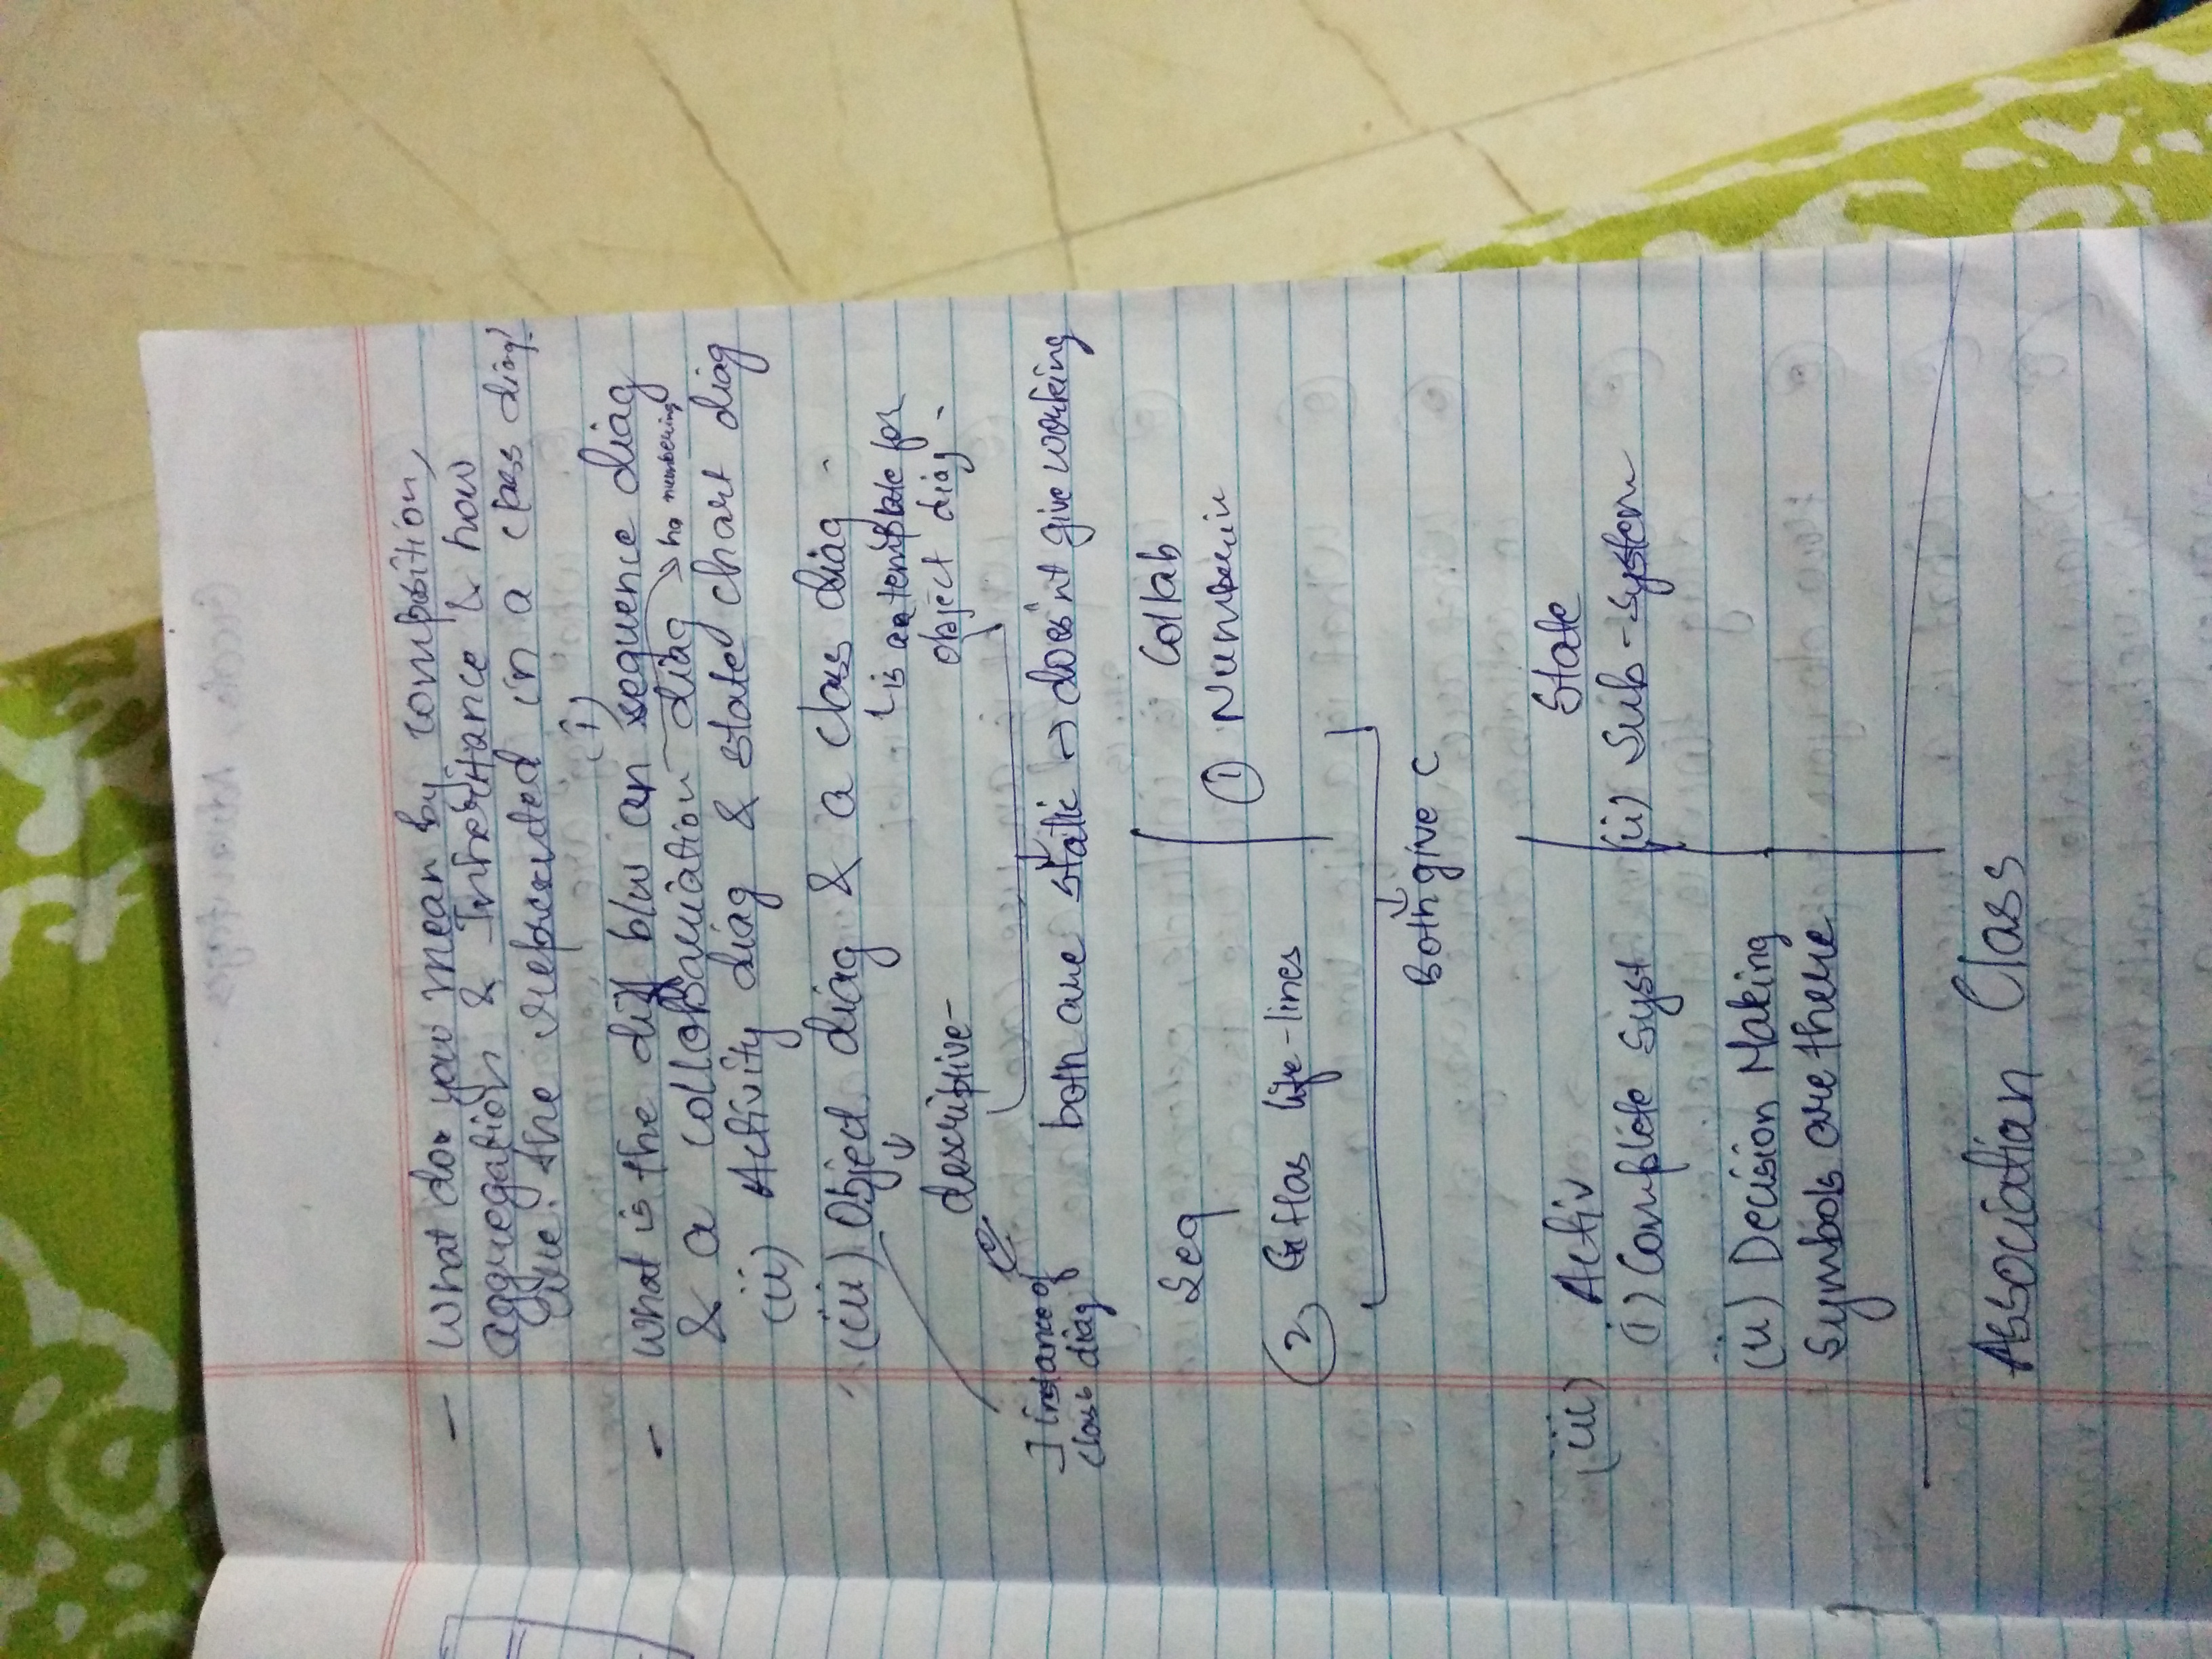 - What do you mean by composition,
aggregation & Inheritance & how
are the represented in a class diag?
- What is the diff b/w an (i) sequence diag
& a collaboration diag → has numbering
(ii) Activity diag & stated chart diag
(iii) Object diag & a class diag -
↳ is a template for
object diag -
descriptive-
] instance of
class diag
both are static → does'nt give working
Seq | Collab
② Has life-lines | ① Numberin
Both give C
(iii) Activ | State
(i) Complete Syst | (ii) Sub-System
(ii) Decision Making
Symbols are there
Association Class